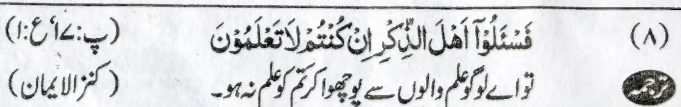 (۸) فَسْئَلُوْۤا اَهْلَ الذِّكْرِ اِنْ كُنْتُمْ لَا تَعْلَمُوْنَ (پ:۱۷، ع:۱)
ترجمہ تو اے لوگو علم والوں سے پوچھو اگر تم کو علم نہ ہو۔ (کنز الایمان)